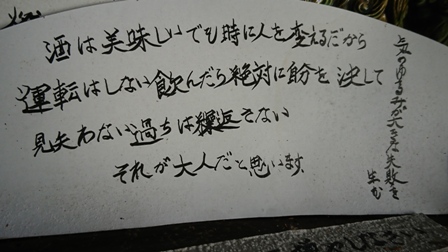 酒は美味しいでも時に人を変えるだから
運転はしない飲んだら絶対に自分を決して
見失わない過ちは繰返さない
それが大人だと思います
心のゆるみが大きな失敗を
生む